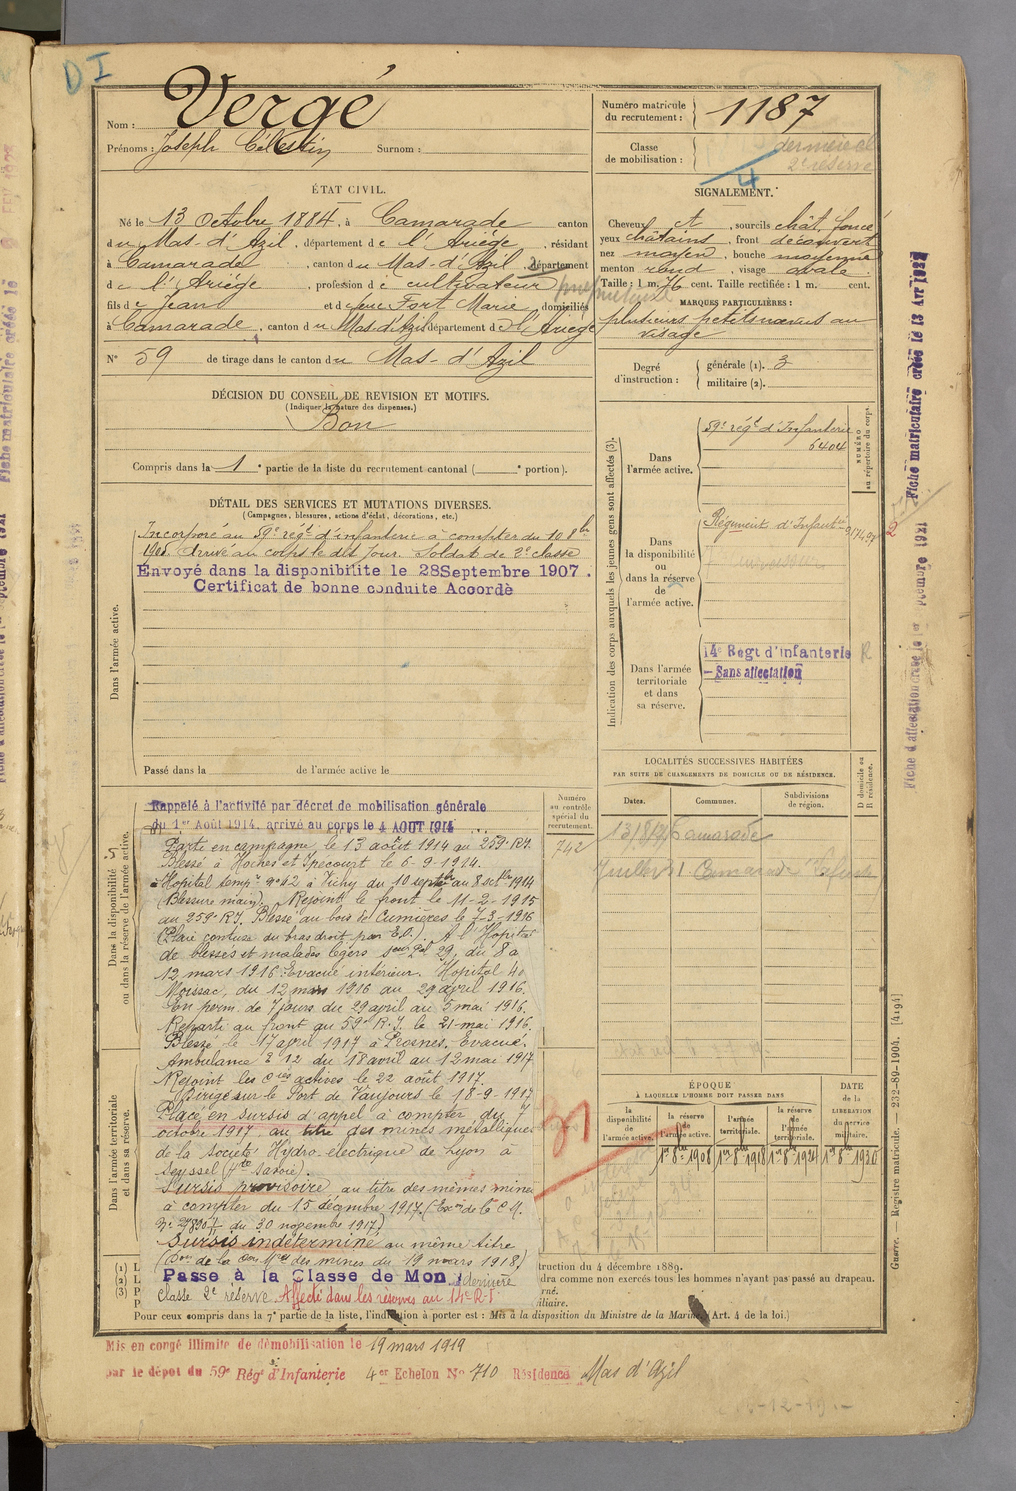 DI
Nom : Vergé
Prénoms : Joseph Célestin Surnom :
Numéro matricule du recrutement : 1187
Classe de mobilisation :
dernière cl
2e réserve
4
ÉTAT CIVIL.
Né le 13 Octobre 1884, à Camarade canton
du Mas-d'Azil, département de l'Ariège, résidant
à Camarade, canton du Mas-d'Azil, département
de l'Ariège, profession de cultivateur
fils de Jean et de feue Fort Marie, domiciliés
à Camarade, canton du Mas d'Azil département de l'Ariège
N° 59 de tirage dans le canton du Mas-d'Azil
SIGNALEMENT.
Cheveux ct, sourcils chât. foncé
yeux châtains, front découvert
nez moyen, bouche moyenne
menton rond, visage ovale
Taille : 1 m. 76 cent. Taille rectifiée : 1 m. cent.
MARQUES PARTICULIÈRES :
plusieurs petits nævus au
visage
Degré d'instruction : générale (1). 3
militaire (2).
DÉCISION DU CONSEIL DE REVISION ET MOTIFS.
(Indiquer la nature des dispenses.)
Bon
Compris dans la 1e partie de la liste du recrutement cantonal ( e portion).
DÉTAIL DES SERVICES ET MUTATIONS DIVERSES.
(Campagnes, blessures, actions d'éclat, décorations, etc.)
Dans l'armée active.
Incorporé au 59e régt d'infanterie à compter du 10 8bre
1905. Arrivé au corps le dit jour. Soldat de 2e classe
Envoyé dans la disponibilite le 28 Septembre 1907.
Certificat de bonne conduite Accordè
Passé dans la de l'armée active le
Indication des corps auxquels les jeunes gens sont affectés (3).
NUMÉRO au répertoire du corps.
Dans l'armée active.
59e régt d'Infanterie
6404
Dans la disponibilité ou dans la réserve de l'armée active.
Régiment d'Infantie
Dans l'armée territoriale et dans sa réserve.
14e Regt d'infanterie R
Sans affectation
LOCALITÉS SUCCESSIVES HABITÉES
PAR SUITE DE CHANGEMENTS DE DOMICILE OU DE RÉSIDENCE.
Dates. Communes. Subdivisions de région. D domicile ou R résidence.
Camarade
Juillet 31 Camarade
Numéro au contrôle spécial du recrutement.
742
Dans la disponibilité ou dans la réserve de l'armée active.
Rappelé à l'activité par décret de mobilisation générale
du 1er Août 1914, arrivé au corps le 4 AOUT 1914
Parti en campagne le 13 août 1914 au 259e R.I.
Blessé à Hoches et Ipecourt le 6-9-1914.
à Hopital tempre n° 42 à Vichy du 10 septbre au 8 octbre 1914
(Blessure main). Rejoint le front le 11-2-1915
au 259e R.I. Blessé au bois de Cumières le 7-3-1916
(Plaie contuse du bras droit par E.O.). A l'Hopital
de blessés et malades légers 29, du 8 a
12 mars 1916. Evacué intérieur. Hopital 40
Moissac, du 12 mars 1916 au 29 avril 1916.
En perm. de 7 jours du 29 avril au 5 mai 1916.
Reparti au front au 59e R.I. le 21-mai 1916.
Blessé le 17 avril 1917 à Prosnes. Evacué.
Ambulance 2/12 du 18 avril au 12 mai 1917
Rejoint les Cies actives le 22 août 1917.
Dirigé sur le Fort de Vaujours le 18-9-1917
Placé en sursis d'appel à compter du 7
octobre 1917, au titre des mines métalliques
de la Société Hydro électrique de Lyon à
Seyssel (Hte Savoie).
Sursis provisoire au titre des mêmes mines
à compter du 15 décembre 1917.
du 30 novembre 1917)
Sursis indéterminé au même titre
des mines du 19 mars 1918)
Passe à la Classe de Mon dernière
classe 2e réserve. Affecté dans les réserves au 14e R.I.
Dans l'armée territoriale et dans sa réserve.
ÉPOQUE
À LAQUELLE L'HOMME DOIT PASSER DANS
la disponibilité de l'armée active.
la réserve de l'armée active. 1er 8bre 1908
l'armée territoriale. 1er 8bre 1918
la réserve de l'armée territoriale. 1er 8bre 1924
DATE de la LIBÉRATION du service militaire. 1er 8bre 1930
(1) L
(2) L
(3) P
truction du 4 décembre 1889.
dra comme non exercés tous les hommes n'ayant pas passé au drapeau.
Pour ceux compris dans la 7e partie de la liste, l'indication à porter est : Mis à la disposition du Ministre de la Marine (Art. 4 de la loi.)
Mis en congé illimité de démobilisation le 19 mars 1919
par le dépot du 59e Régt d'Infanterie 4er Echelon No 710 Résidence Mas d'Azil
Guerre. — Registre matricule. — 232-89-1904. [4194]
Fiche matriculaire créée le 13 Avr 1932